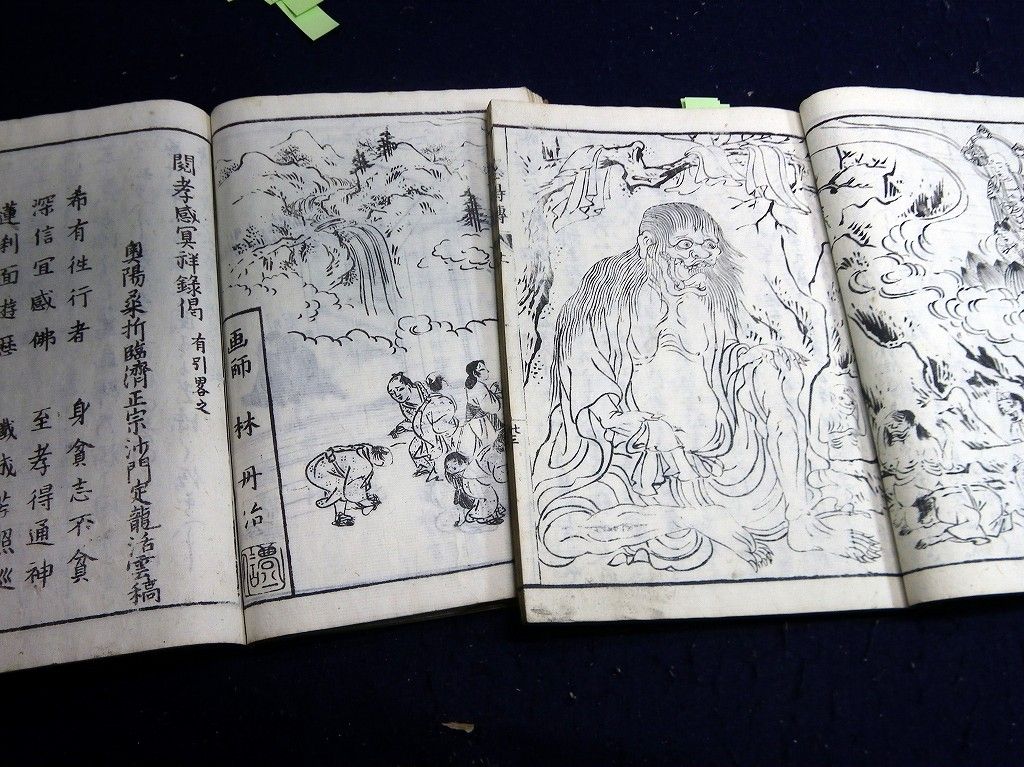 閲孝感冥祥録偈 有引畧之
奥陽桑折臨濟正宗沙門定龍活雲稿
希有徃行者 身貧志不貧
深信冝感佛 至孝得通神
蓮刹面遊歴
画師 林 丹治